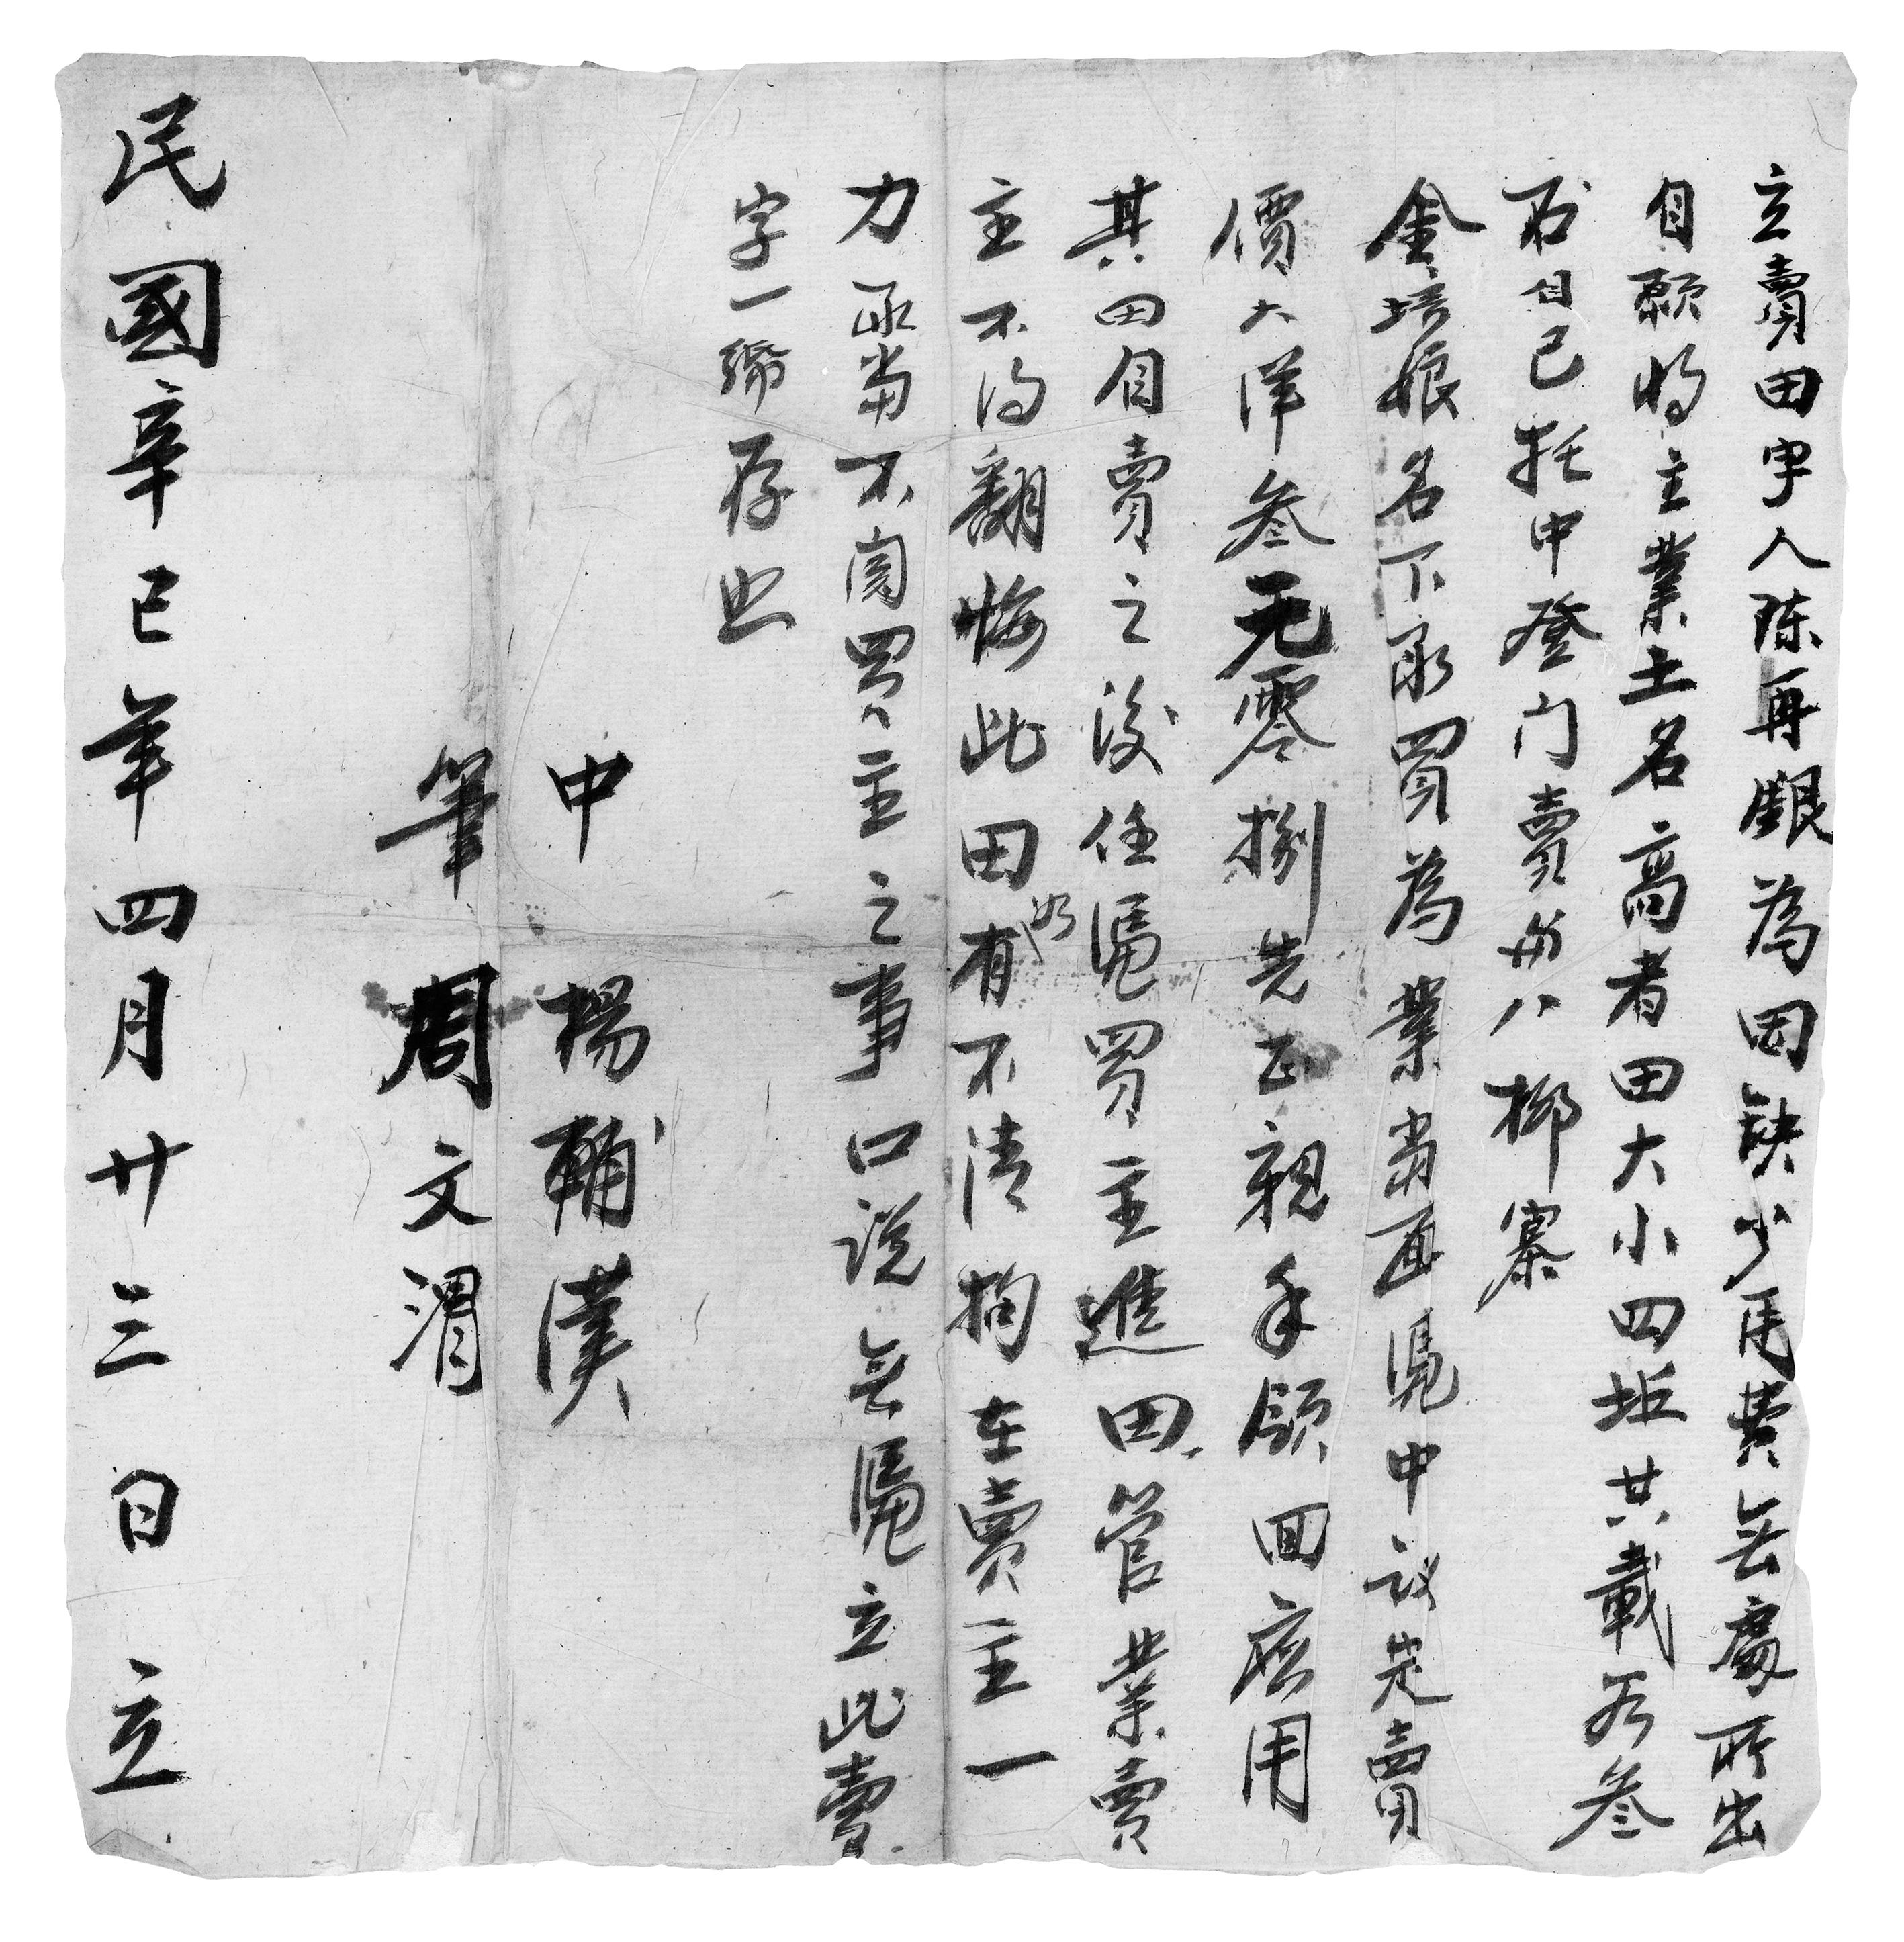 立賣田字人陈再銀為因缺少用費無處所出
自願將主業土名高者田大小四坵共載谷叁
石自己托中登门賣與八柳寨
金培娘名下承買為業當面凴中议定賣
價大洋叁元零捌先正親手領回應用
其田自賣之後任凴買主進田管業賣
主不得翻悔此田如有不清拘在賣主一
力承当不関買主之事口説無凴立此賣
字一紙存照
中 楊輔漢
筆 周文渭
民國辛巳年四月廿三日立